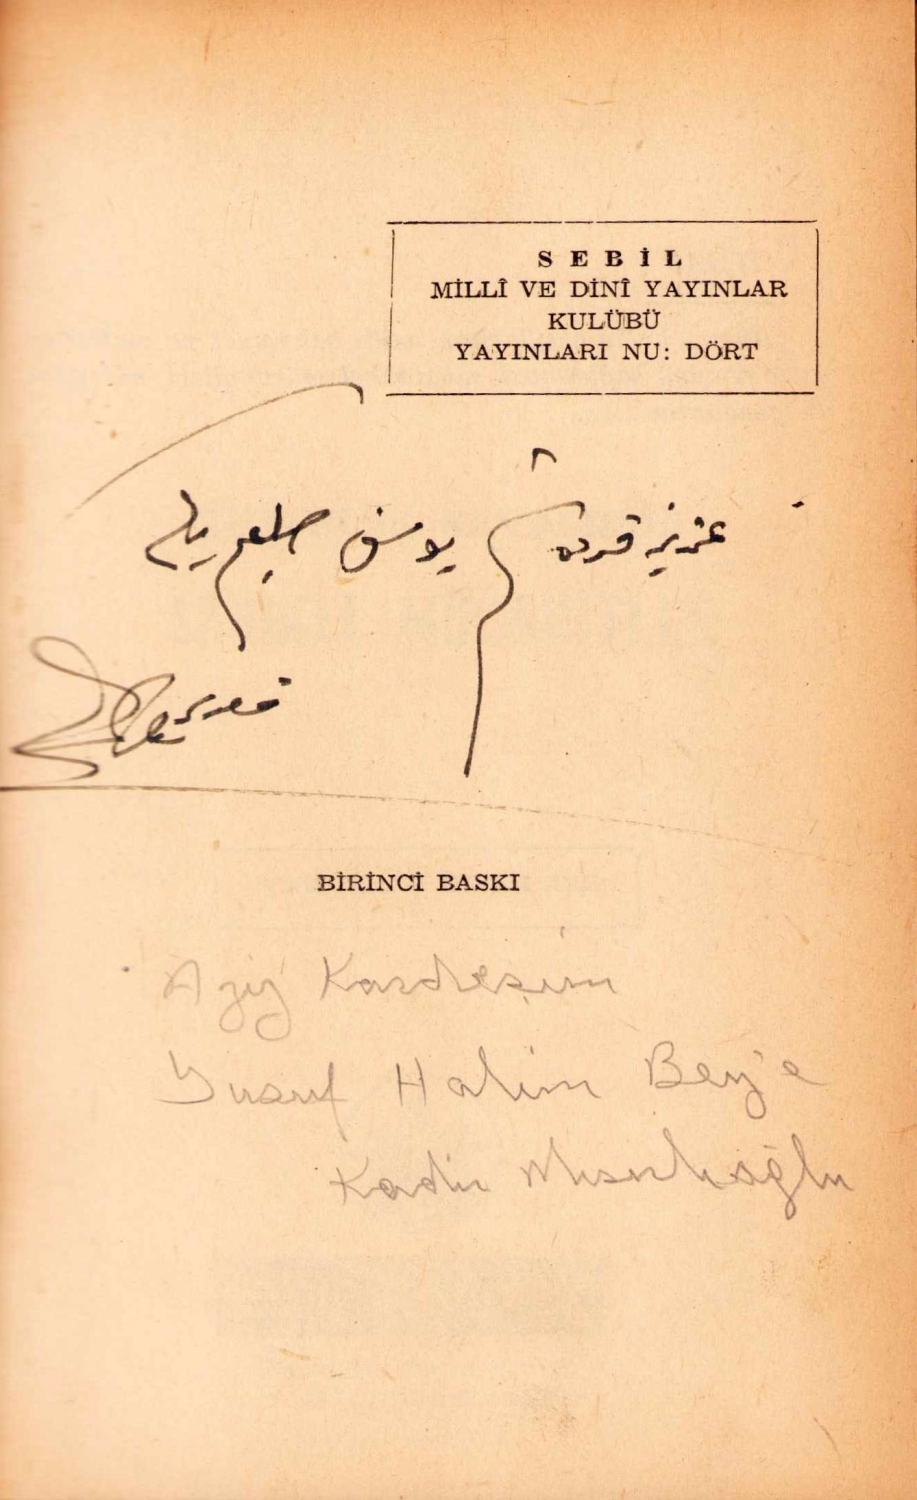 SEBİL
MİLLÎ VE DİNÎ YAYINLAR
KULÜBÜ
YAYINLARI NU: DÖRT
عزيز قردشم يوسف حليم بكه
قدير
BİRİNCİ BASKI
Aziz Kardeşim
Yusuf Halim Bey'e
Kadir Mısırlıoğlu